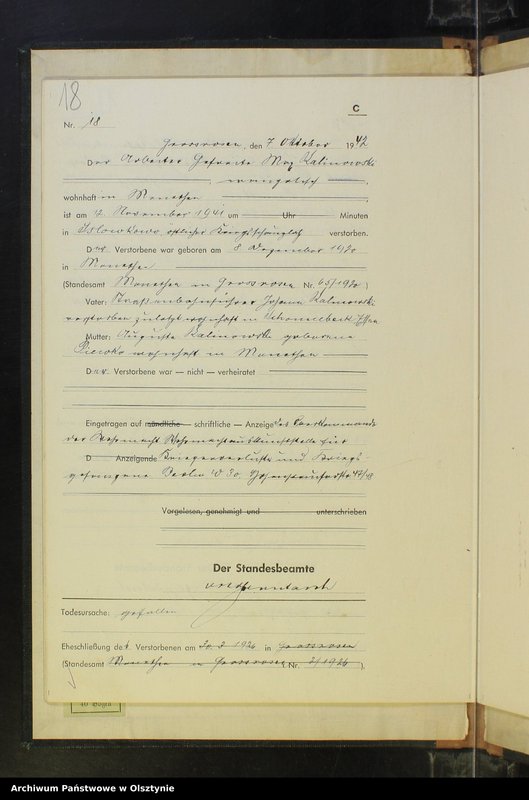 18
C
Nr. 18
Grossrosen, den 7 Oktober 1942
Der Arbeiter Gefreite Max Kalinowski
evangelisch
wohnhaft in Monethen
ist am 4. November 1941 um Uhr Minuten
in östlicher Kriegsschauplatz verstorben.
Der Verstorbene war geboren am 8 Dezember 1920
in Monethen
(Standesamt Monethen in Grossrosen Nr. 65/1920)
Vater: Johann Kalinowski
verstorben zuletzt wohnhaft in Schonnebeck Essen
Mutter: Auguste Kalinowski geborene
wohnhaft in Monethen
Der Verstorbene war — nicht — verheiratet
Eingetragen auf mündliche — schriftliche — Anzeige des Oberkommandos
der Wehrmacht Wehrmachtauskunftstelle für
D Anzeigende Kriegerverluste und Kriegs-
gefangene Berlin W 30, Hohenstaufenstr 47/48
Vorgelesen, genehmigt und unterschrieben
Der Standesbeamte
Todesursache: gefallen
Eheschließung der Verstorbenen am 20. 2 1926 in Grossrosen
(Standesamt Monethen in Grossrosen Nr. 2/1926).
40 Bogen
Archiwum Państwowe w Olsztynie